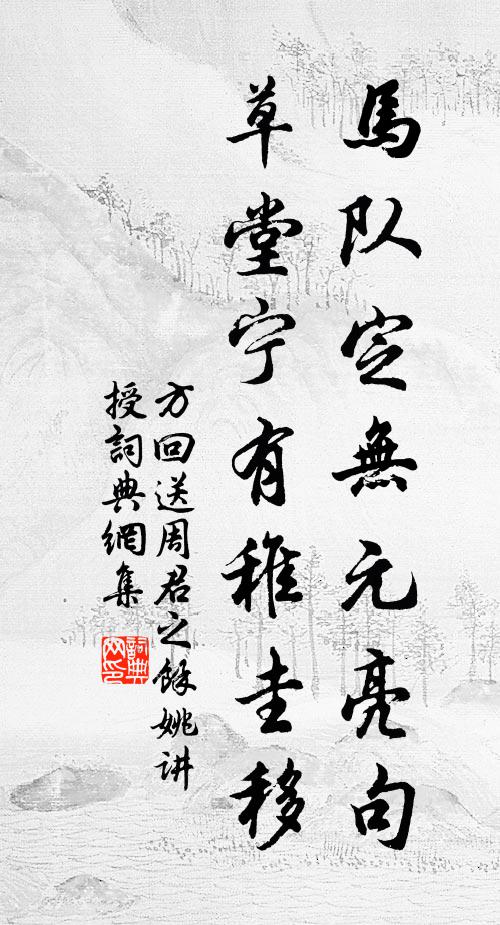 馬队定無元亮句
草堂宁有稚圭移
方回送周君之餘姚讲
授詞典網集
詞典网印